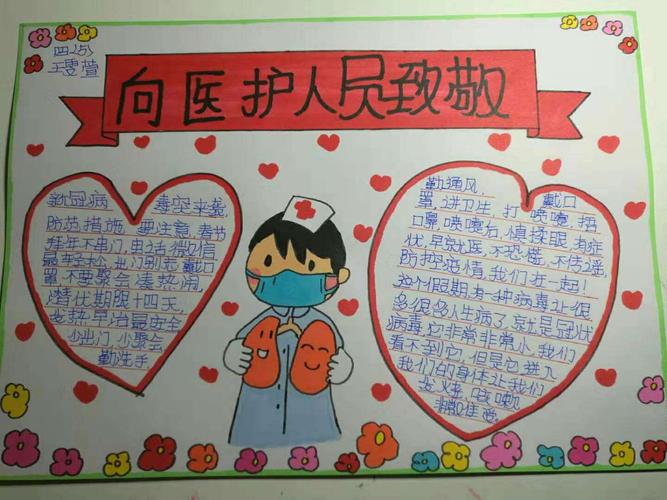 四(5)
王雯萱
向医护人员致敬
新冠病 毒突来袭,
防范措施 要注意,春节
拜年不串门,电话微信
最幸福,出门别忘戴口
罩,不要聚会凑热闹,
潜伏期限十四天,
发热早治最安全
少出门,少聚会
勤洗手,
勤通风, 戴口
罩,进卫生,打喷嚏,捂
口鼻,喷嚏后,慎揉眼,有症
状,早就医,不恐慌,不传谣,
防控疫情,我们在一起!
这个假期,有一种病毒让很
多很多人生病了,就是冠状
病毒它非常非常小,我们
看不到它,但是它进入
我们的身体让我们
发烧,咳嗽
非常难受